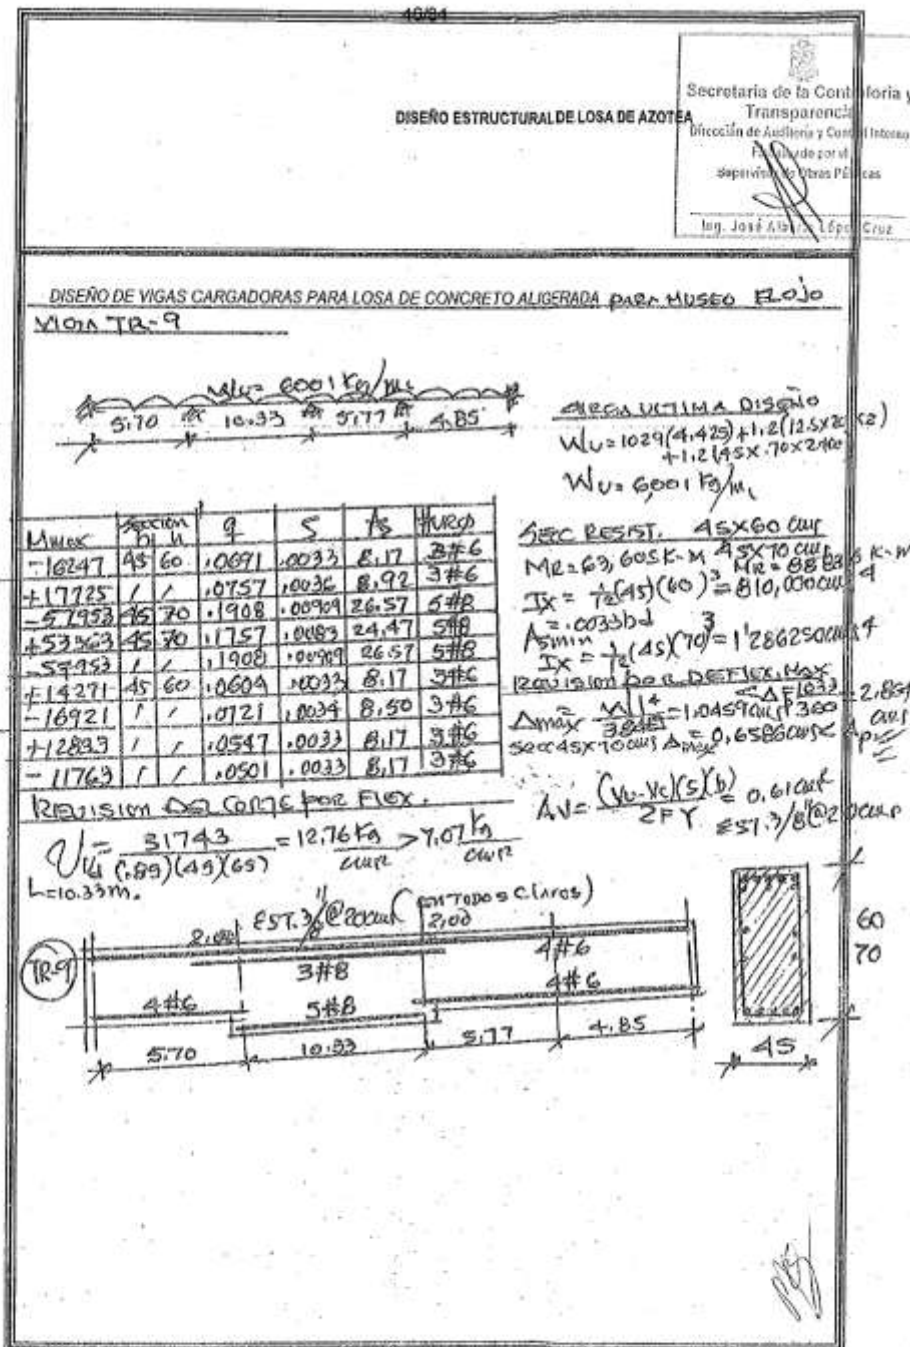 46/84
Secretaria de la Contraloria y
Transparencia
Dirección de Auditoria y Control Interno
por el
supervisor de Obras Públicas
Ing. José Alberto López Cruz
DISEÑO ESTRUCTURAL DE LOSA DE AZOTEA
DISEÑO DE VIGAS CARGADORAS PARA LOSA DE CONCRETO ALIGERADA PARA MUSEO
VIGA TR-9
Wu= 6001 Kg/ML
5.70 10.33 5.77 4.85
CARGA ULTIMA DISEÑO
WU=1029(4.425)+1.2(125x2)
+1.2(.45x.70x2400
WU= 6,001 Kg/ML
Mmax Sección b h q ς As #VRS
-16247 45 60 .0691 .0033 8.17 3#6
+17725 / / .0757 .0036 8.92 3#6
-57953 45 70 .1908 .00909 26.57 5#8
+53563 45 70 .1757 .0083 24.47 5#8
-57953 / / .1908 .00909 26.57 5#8
+14271 45 60 .0604 .0033 8.17 3#6
-16921 / / .0721 .0034 8.50 3#6
+12833 / / .0547 .0033 8.17 3#6
-11763 / / .0501 .0033 8.17 3#6
SECC RESIST. 45X60 cms
MR=63,605K-M 45X70 cms
MR= K-M
Ix = 1/12(45)(60)3 = 810,000 cms4
Asmin = .0033bd
Ix = 1/12(45)(70)3=1'286250cms4
REVISION POR DEFLEX. MAX
Δmax = Wl4/384EI =1.0459cms < 1033/360 2.869 cms
secc 45x70cms Δmax = 0.6586cms <
REVISION DEL CORTE POR FLEX.
Vu= 31743/(.85)(45)(65) = 12.76 Kg/cm2 > 7.07 Kg/cm2
L=10.33m.
AV= (Vu-Vc)(S)(b)/2FY = 0.61 cm2
EST. 3/8"@20cms
EST. 3/8"@20cms (EN TODOS CLAROS)
2.00 2.00
TR-9
3#8 4#6
4#6 5#8 4#6
5.70 10.33 5.77 4.85
60
70
45